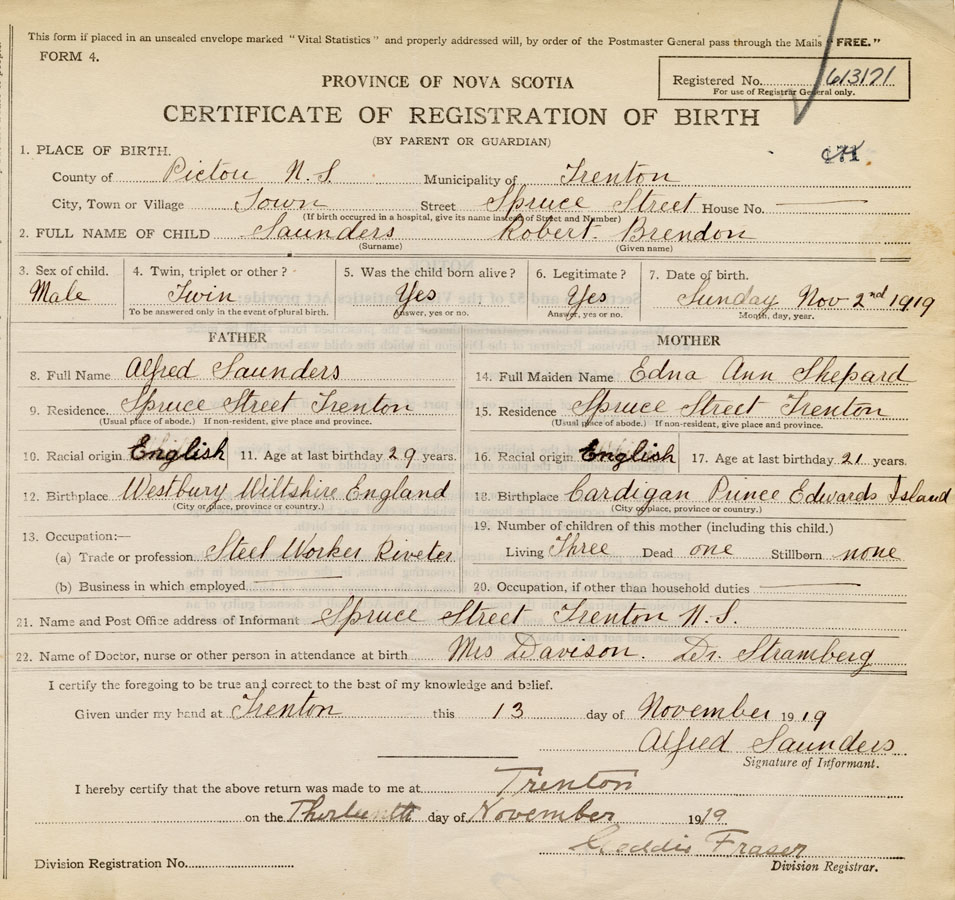 This form if placed in an unsealed envelope marked "Vital Statistics" and properly addressed will, by order of the Postmaster General pass through the Mails "FREE."
FORM 4.
Registered No. 613121
For use of Registrar General only.
PROVINCE OF NOVA SCOTIA
CERTIFICATE OF REGISTRATION OF BIRTH
(BY PARENT OR GUARDIAN)
1. PLACE OF BIRTH.
County of Pictou N.S. Municipality of Trenton
City, Town or Village Town Street Spruce Street House No.
(If birth occurred in a hospital, give its name instead of Street and Number)
2. FULL NAME OF CHILD Saunders Robert Brendon
(Surname) (Given name)
3. Sex of child. 4. Twin, triplet or other? 5. Was the child born alive? 6. Legitimate? 7. Date of birth.
Male Twin Yes Yes Sunday Nov 2nd 1919
To be answered only in the event of plural birth. Answer, yes or no. Answer, yes or no. Month, day, year.
FATHER MOTHER
8. Full Name Alfred Saunders 14. Full Maiden Name Edna Ann Shepard
9. Residence. Spruce Street Trenton 15. Residence Spruce Street Trenton
(Usual place of abode.) If non-resident, give place and province. (Usual place of abode.) If non-resident, give place and province.
10. Racial origin English 11. Age at last birthday 29 years. 16. Racial origin English 17. Age at last birthday 21 years.
12. Birthplace Westbury Wiltshire England 18. Birthplace Cardigan Prince Edwards Island
(City or place, province or country.) (City or place, province or country.)
13. Occupation:— 19. Number of children of this mother (including this child.)
(a) Trade or profession Steel Worker Riveter Living Three Dead one Stillborn none
(b) Business in which employed 20. Occupation, if other than household duties
21. Name and Post Office address of Informant Spruce Street Trenton N.S.
22. Name of Doctor, nurse or other person in attendance at birth Mrs Davison. Dr. Stramberg
I certify the foregoing to be true and correct to the best of my knowledge and belief.
Given under my hand at Trenton this 13 day of November 1919
Alfred Saunders
Signature of Informant.
I hereby certify that the above return was made to me at Trenton
on the day of November 19/19
Geddie Fraser
Division Registration No. Division Registrar.